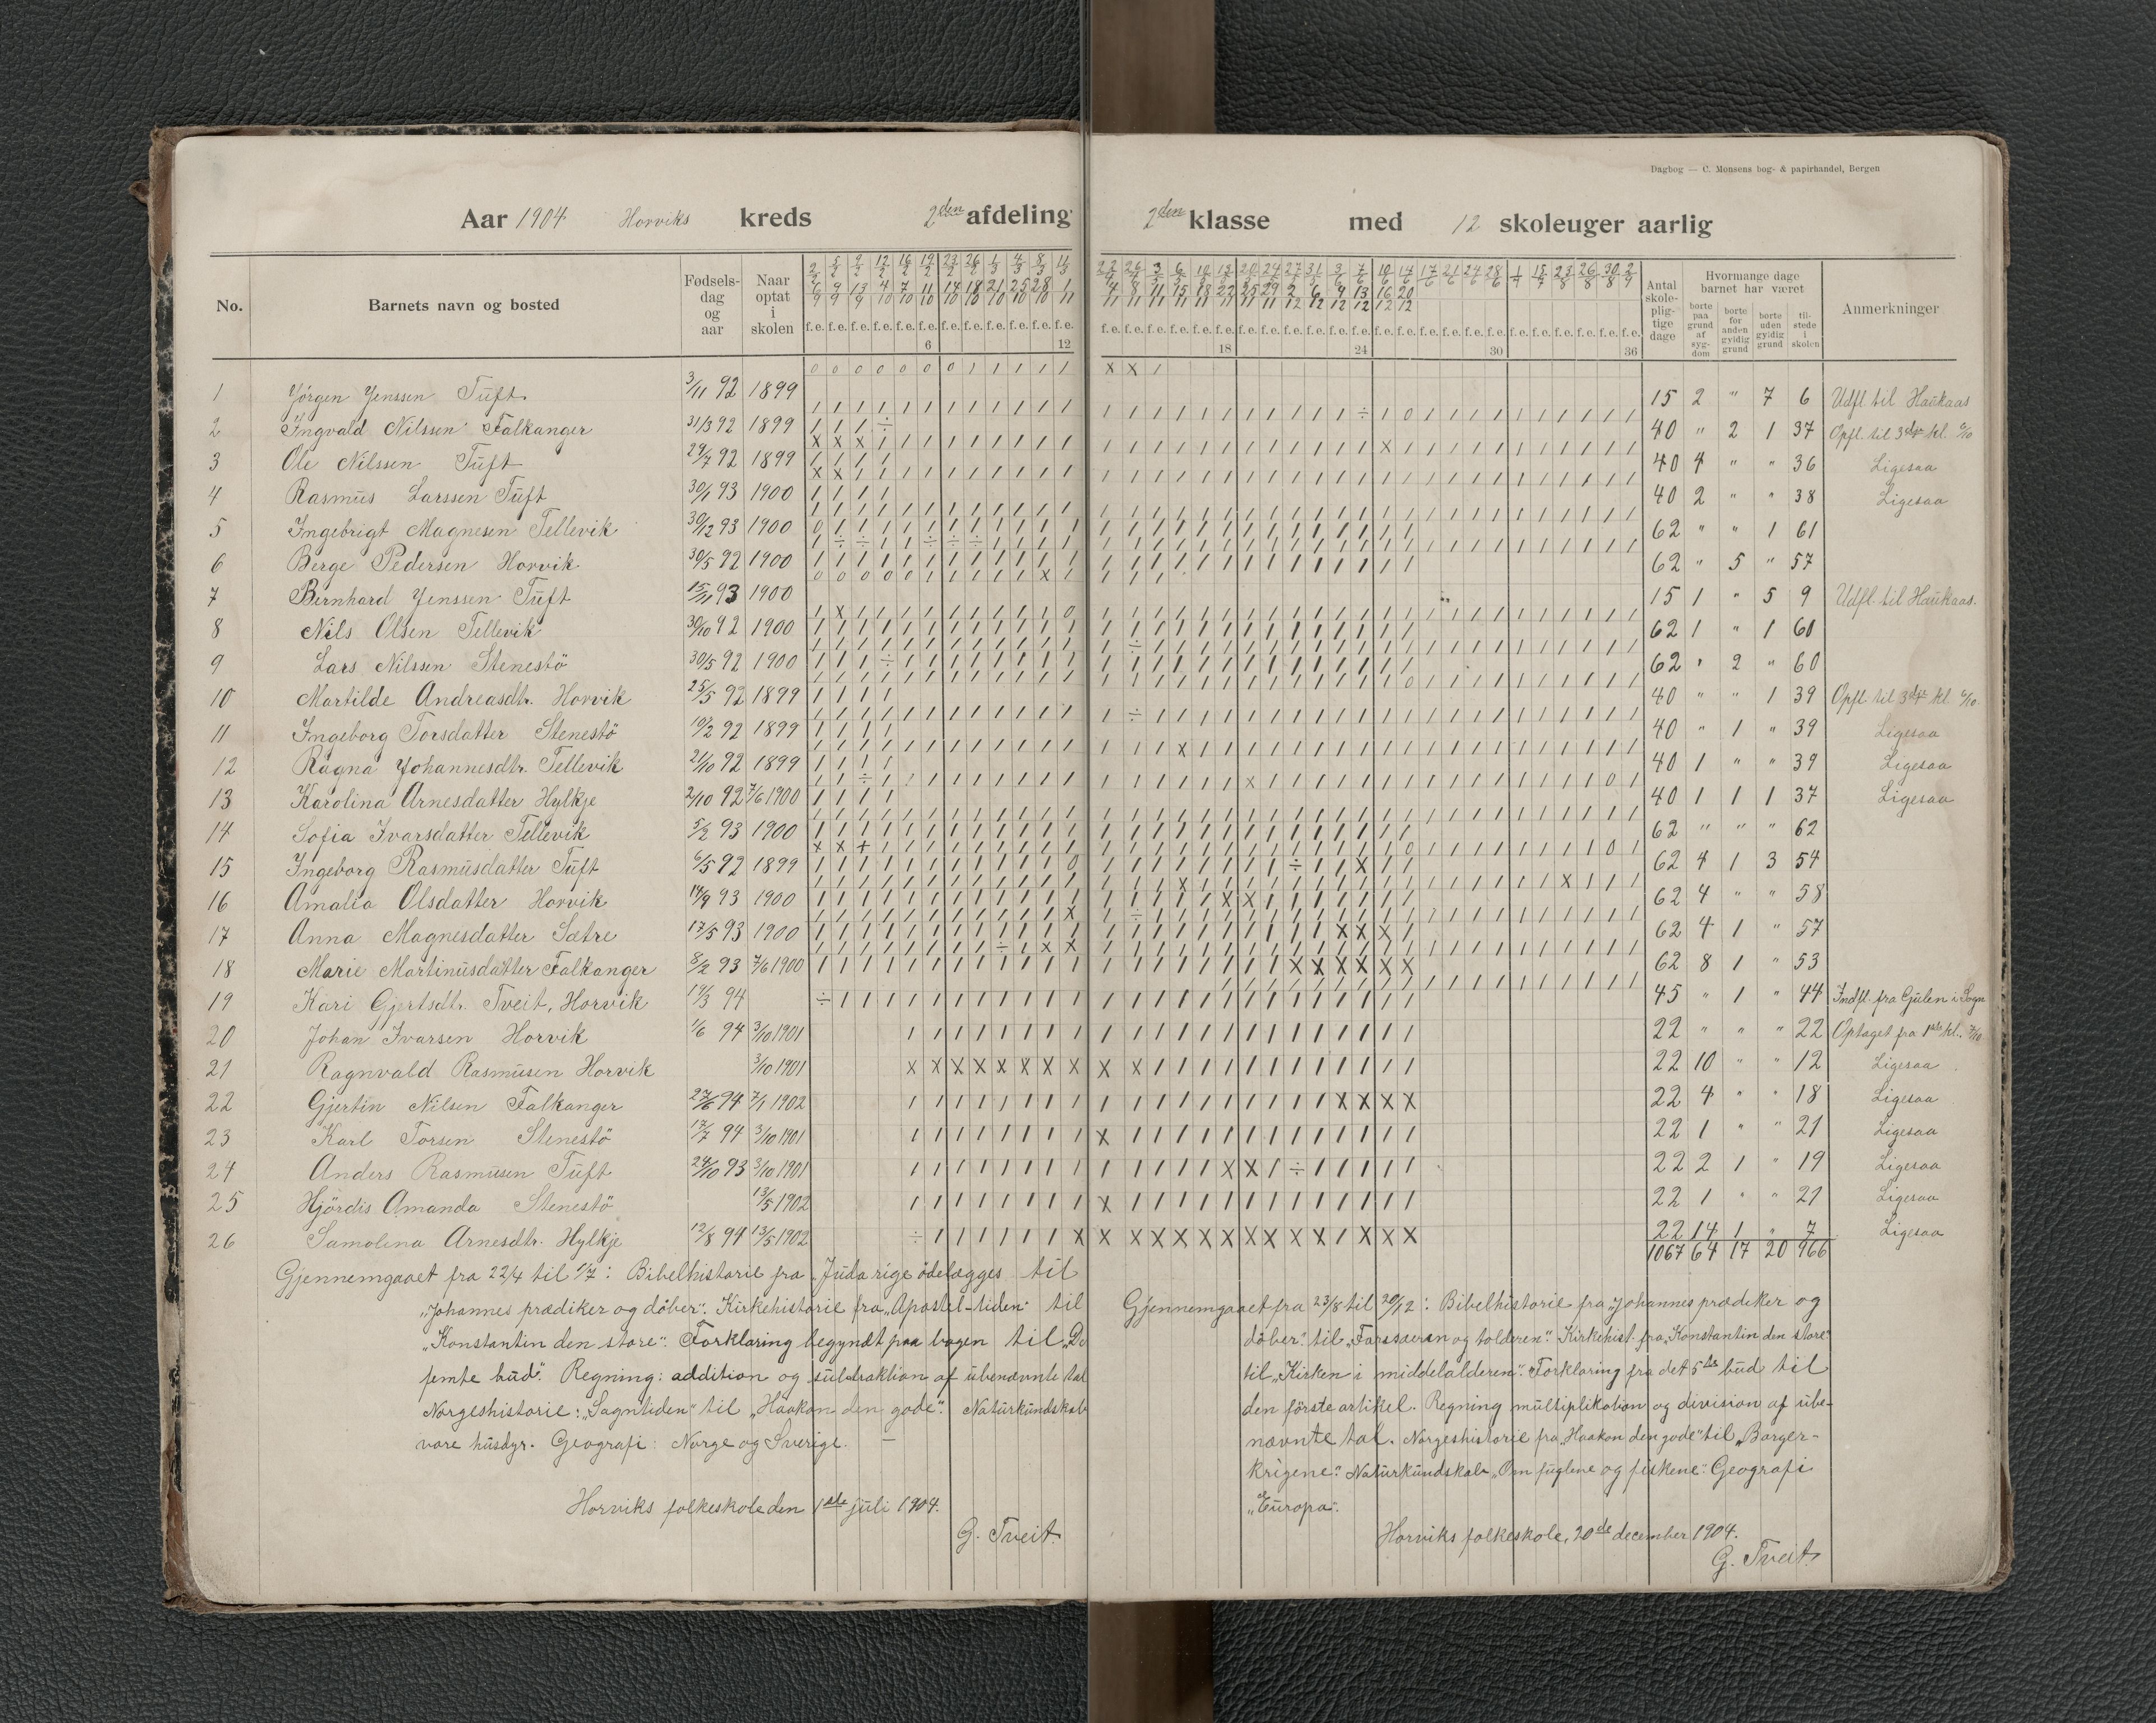 Dagbog — C. Monsens bog- & papirhandel, Bergen
Aar 1904 Horviks kreds 2den afdeling 2den klasse med 12 skoleuger aarlig
No. Barnets navn og bosted Fødsels-dag og aar Naar optat i skolen Antal skole-plig-tige dage Hvormange dage barnet har været Anmerkninger
borte paa grund af syg-dom borte for anden gyldig grund borte uden gyldig grund til-stede i skolen
6 12 18 24 30 36
1 Jörgen Jenssen Tuft 3/11 92 1899 15 2 " 7 6 Udfl. til Haukaas
2 Ingvald Nilssen Falkanger 31/3 92 1899 40 " 2 1 37 Opfl. til 3die kl.
3 Ole Nilssen Tuft 29/7 92 1899 40 4 " " 36 Ligesaa
4 Rasmus Larssen Tuft 30/1 93 1900 40 2 " " 38 Ligesaa
5 Ingebrigt Magnesen Tellevik 30/12 93 1900 62 " " 1 61
6 Berge Pedersen Horvik 30/5 92 1900 62 " 5 " 57
7 Bernhard Jenssen Tuft 15/11 93 1900 15 1 " 5 9 Udfl. til Haukaas.
8 Nils Olsen Tellevik 30/10 92 1900 62 1 " 1 60
9 Lars Nilssen Stenestö 30/5 92 1900 62 " 2 " 60
10 Martilde Andreasdtr. Horvik 25/5 92 1899 40 " " 1 39 Opfl. til 3die kl.
11 Ingeborg Torsdatter Stenestö 10/2 92 1899 40 " 1 " 39 Ligesaa
12 Ragna Johannesdtr. Tellevik 21/10 92 1899 40 1 " " 39 Ligesaa
13 Karolina Arnesdatter Hylkje 2/10 92 7/6 1900 40 1 1 1 37 Ligesaa
14 Sofia Ivarsdatter Tellevik 5/2 93 1900 62 " " " 62
15 Ingeborg Rasmusdatter Tuft 6/5 92 1899 62 4 1 3 54
16 Amalia Olsdatter Horvik 14/9 93 1900 62 4 " " 58
17 Anna Magnesdatter Sætre 17/5 93 1900 62 4 1 " 57
18 Marie Martinusdatter Falkanger 8/2 93 7/6 1900 62 8 1 " 53
19 Kari Gjertsdtr. Tveit, Horvik 14/3 94 45 " 1 " 44 Indfl. fra Gulen i Sogn
20 Johan Ivarsen Horvik 1/6 94 3/10 1901 22 " " " 22 Optaget fra 1ste kl.
21 Ragnvald Rasmusen Horvik 3/10 1901 22 10 " " 12 Ligesaa
22 Gjertin Nilsen Falkanger 27/6 94 7/1 1902 22 4 " " 18 Ligesaa
23 Karl Torsen Stenestö 17/7 94 3/10 1901 22 1 " " 21 Ligesaa
24 Anders Rasmusen Tuft 24/10 93 3/10 1901 22 2 1 " 19 Ligesaa
25 Hjördis Amanda Stenestö 13/5 1902 22 1 " " 21 Ligesaa
26 Samolina Arnesdtr. Hylkje 12/8 94 13/5 1902 22 14 1 " 7 Ligesaa
1067 64 17 20 966
Gjennemgaaet fra 22/4 til 1/7: Bibelhistorie fra „Juda rige ödelægges til
„Johannes prædiker og döber". Kirkehistorie fra „Apostel-tiden" til
„Konstantin den store". Forklaring begyndt paa bogen til „De
femte bud". Regning: addition og subtraktion af ubenævnte tal
Norgeshistorie: „Sagntiden" til „Haakon den gode". Naturkundskab
vore husdyr. Geografi: Norge og Sverige. —
Horviks folkeskole den 1ste juli 1904.
G. Tveit.
Gjennemgaaet fra 23/8 til 20/12: Bibelhistorie fra „Johannes prædiker og
döber" til „Farisæeren og tolderen". Kirkehist. fra „Konstantin den store"
til „Kirken i middelalderen". Forklaring fra det 5te bud til
den förste artikel. Regning multiplikation og division af ube-
nævnte tal. Norgeshistorie fra „Haakon den gode" til „Borger-
krigene". Naturkundskab „Om fuglene og fiskene". Geografi
„Europa".
Horviks folkeskole, 20de december 1904.
G. Tveit